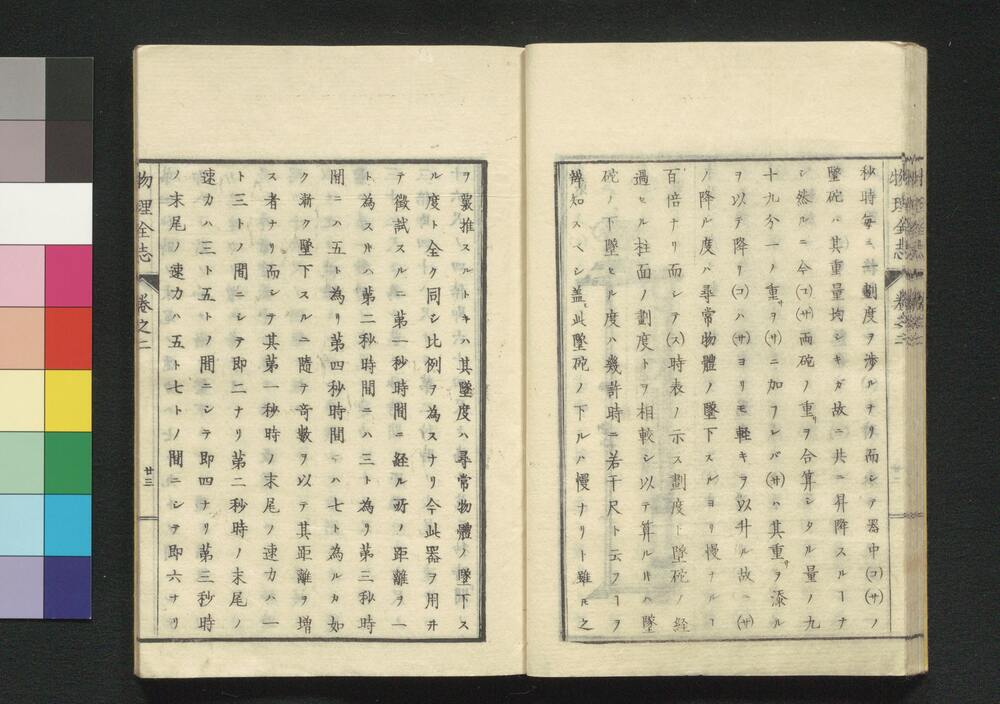 秒時毎ニ一劃度ヲ渉ルナリ而シテ器中(コ)(サ)ノ
墜砣ハ其重量均シキガ故ニ共ニ昇降スルヿナ
シ然ルニ今(コ)(サ)両砣ノ重サヲ合算シタル量ノ九
十九分一ノ重サヲ(サ)ニ加フレバ(サ)ハ其重サヲ添ル
ヲ以テ降リ(コ)ハ(サ)ヨリモ軽キヲ以升ル故ニ(サ)
ノ降ル度ハ尋常物體ノ墜下スルヨリ慢ナルヿ
百倍ナリ而シテ(ス)時表ノ示ス劃度ト墜砣ノ経
過セル柱面ノ劃度トヲ相較シ以テ算ルキハ墜
砣ノ下墜セル度ハ幾許時ニ若干尺ト云フヿヲ
辨知スベシ蓋シ此墜砣ノ下ルハ慢ナリト雖モ之
物理全志 巻之二
ヲ累推スルトキハ其墜度ハ尋常物體ノ墜下ス
ル度ト全ク同シ比例ヲ為スナリ今此器ヲ用井
テ徴試スルニ第一秒時間ニ経ル所ノ距離ヲ一
ト為スキハ第二秒時間ニハ三ト為リ第三秒時
間ニハ五ト為リ第四秒時間ニハ七ト為ルカ如
ク漸ク墜下スルニ隨ヲ奇數ヲ以テ其距離ヲ増
ス者ナリ而シテ其第一秒時ノ末尾ノ速力ハ一
ト三トノ間ニシテ即二ナリ第二秒時ノ末尾ノ
速力ハ三ト五トノ間ニシテ即四ナリ第三秒時
ノ末尾ノ速力ハ五ト七トノ間ニシテ即六ナリ
物理全志 巻之二 廿三